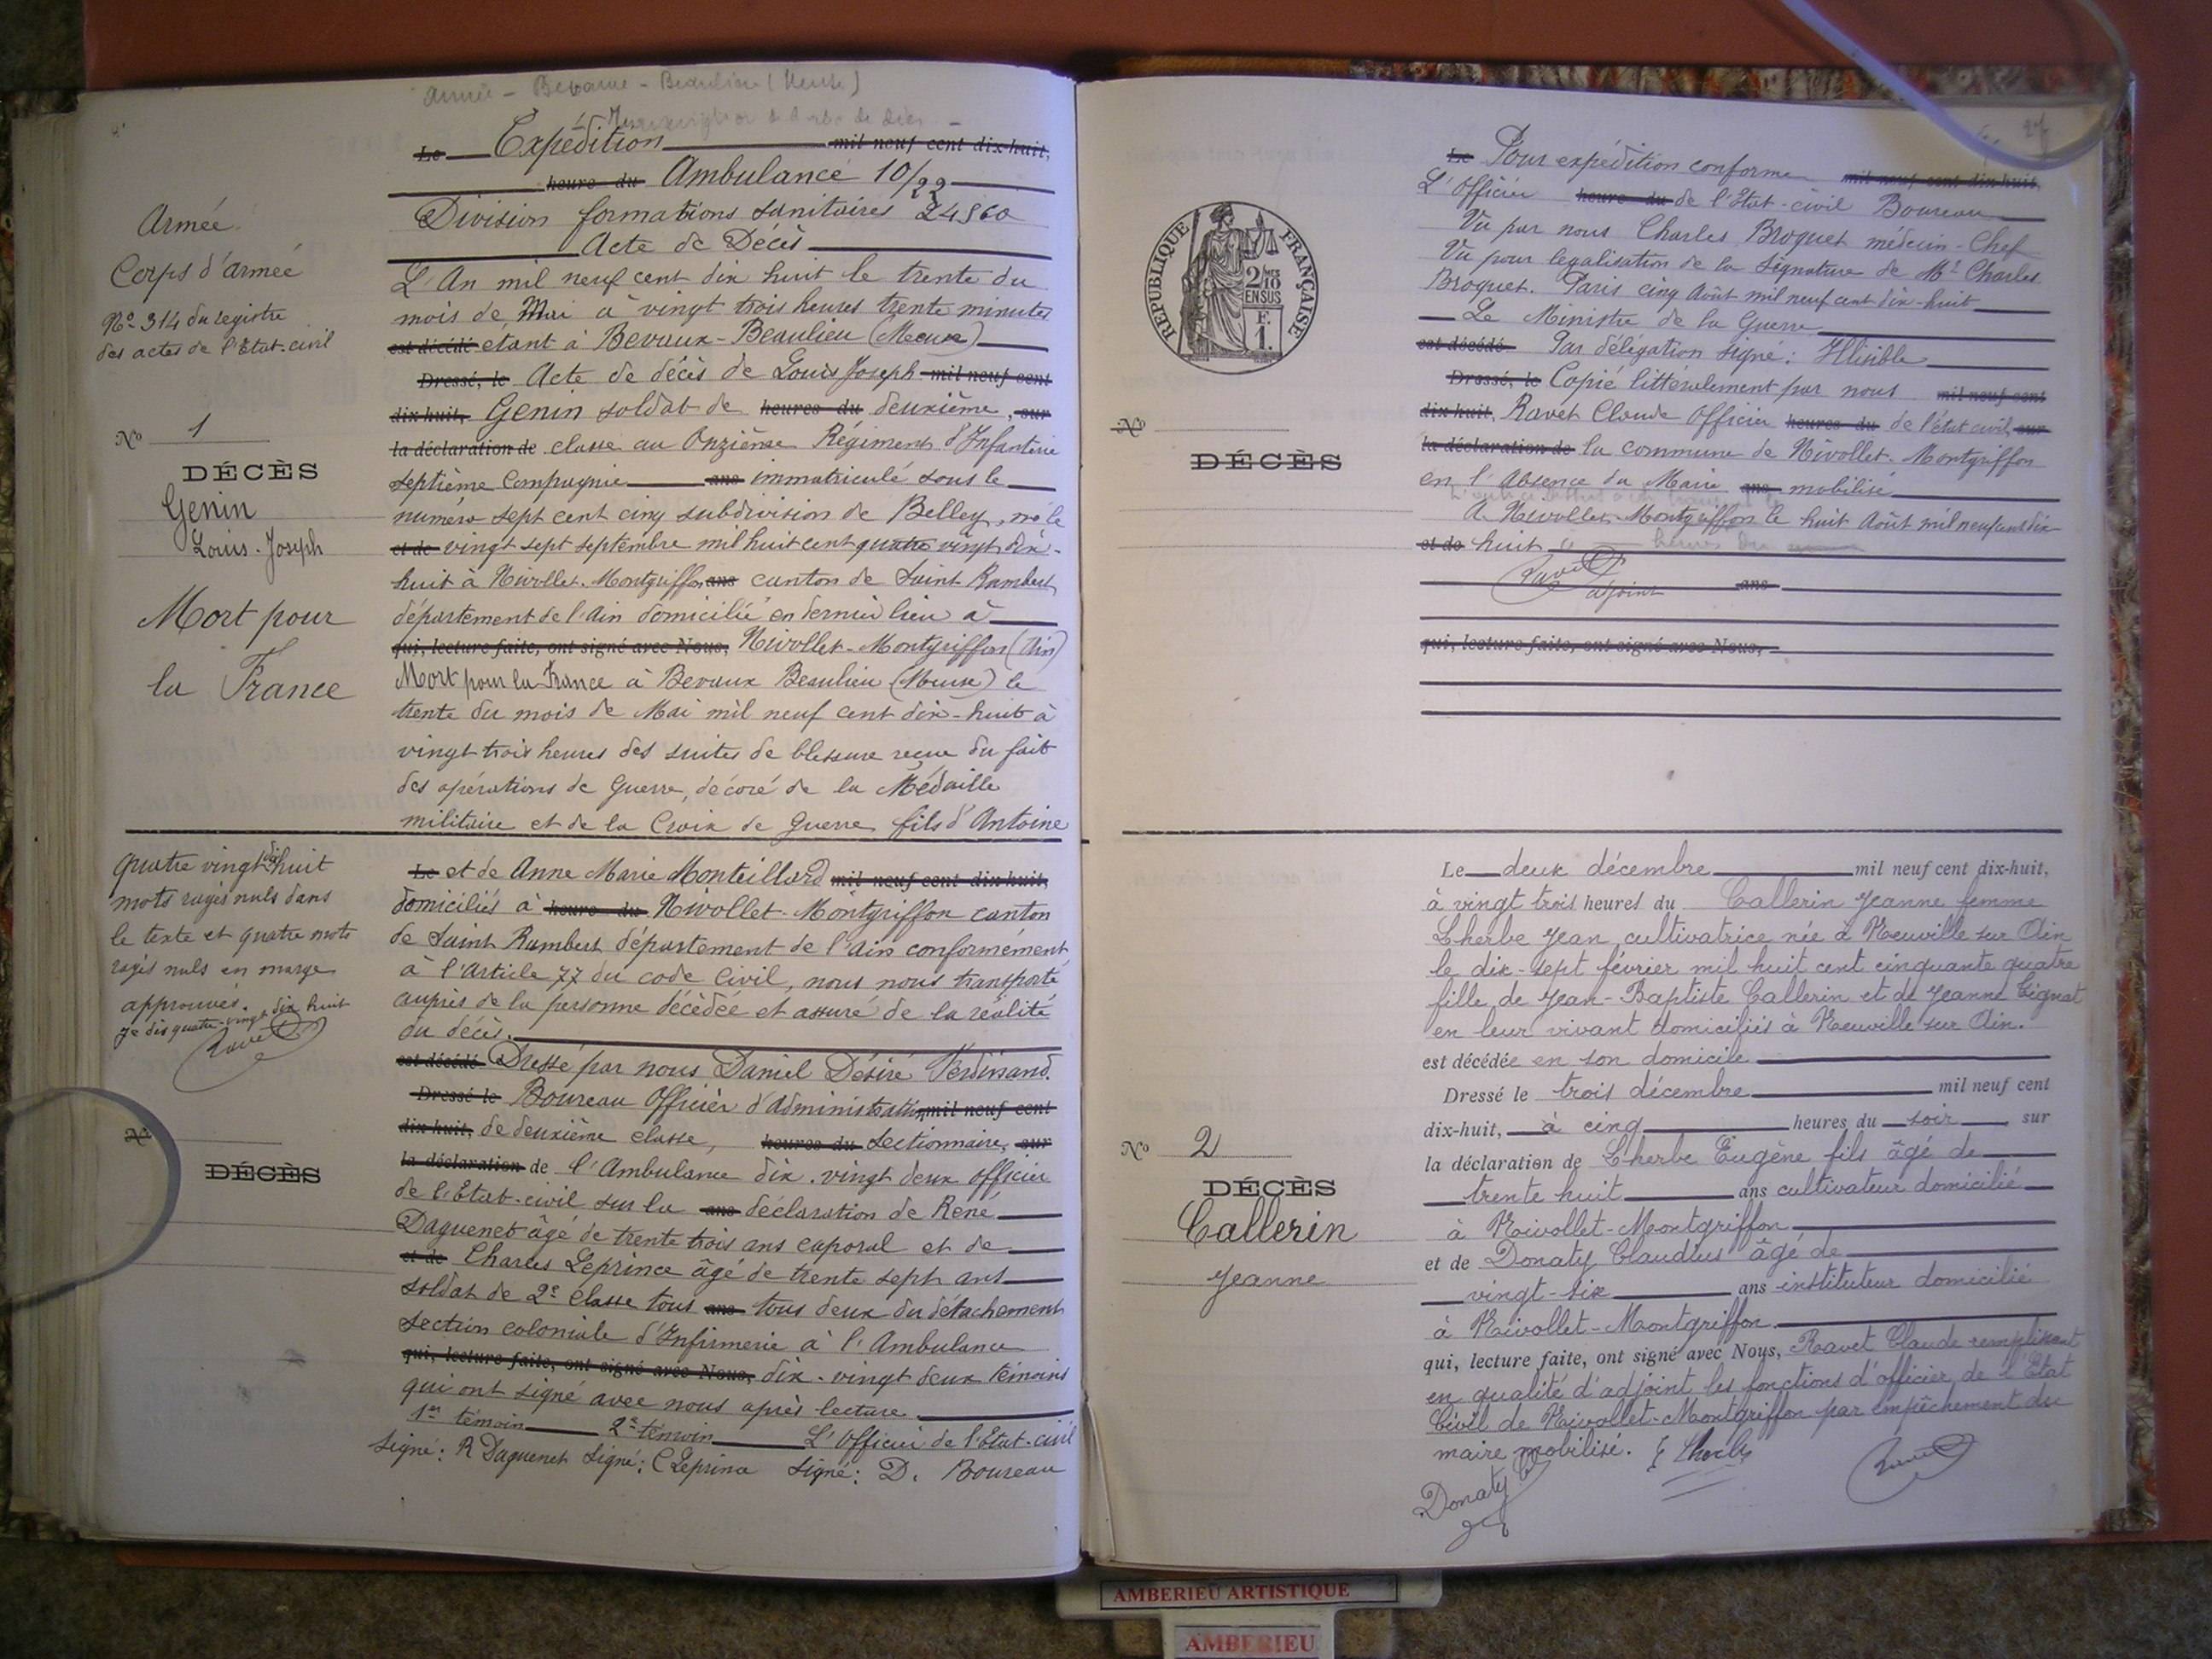 Armée
Corps d'armée
No 314 du registre
des actes de l'Etat-civil
No 1
DÉCÈS
Genin
Louis-Joseph
Mort pour
la France
Le Expédition mil neuf cent dix-huit,
heure du Ambulance 10/22
Division formations sanitaires 24560
Acte de Décès
L'An mil neuf cent dix huit le trente du
mois de Mai à vingt trois heures trente minutes
est décédé étant à Bevaux-Beaulieu (Meuse)
Dressé, le Acte de décès de Louis Joseph mil neuf cent
dix-huit, Genin soldat de heures du deuxième, sur
la déclaration de classe au Onzième Régiment d'Infanterie
septième Compagnie ans immatriculé sous le
numéro sept cent cinq subdivision de Belley, né le
et de vingt sept septembre mil huit cent quatre vingt dix-
huit à Nivollet-Montgriffon ans canton de Saint Rambert
département de l'Ain domicilié en dernier lieu à
qui, lecture faite, ont signé avec Nous, Nivollet-Montgriffon (Ain)
Mort pour la France à Bevaux Beaulieu (Meuse) le
trente du mois de Mai mil neuf cent dix-huit à
vingt trois heures des suites de blessure reçue du fait
des opérations de Guerre, décoré de la Médaille
militaire et de la Croix de Guerre fils d'Antoine
quatre vingt dix huit
mots rayés nuls dans
le texte et quatre mots
rayés nuls en marge
approuvés.
je dis quatre-vingt dix huit
Ravet
No
DÉCÈS
Le et de Anne Marie Monteillard mil neuf cent dix-huit,
domiciliés à heure du Nivollet-Montgriffon canton
de Saint Rambert département de l'Ain conformément
à l'Article 77 du code Civil, nous nous transporté
auprès de la personne décédée et assuré de la réalité
du décès.
est décédé Dressé par nous Daniel Désiré Ferdinand
Dressé le Boureau Officier d'Administration mil neuf cent
dix-huit, de deuxième classe, heures du Sectionnaire, sur
la déclaration de de l'Ambulance dix. vingt deux officier
de l'Etat-civil sur la ans déclaration de René
Daguenet âgé de trente trois ans caporal et de
et de Charles Leprince âgé de trente sept ans
soldat de 2e classe tous ans tous deux du détachement
section coloniale d'Infirmerie à l'Ambulance
qui, lecture faite, ont signé avec Nous, dix. vingt deux témoins
qui ont signé avec nous après lecture
1er témoin 2e témoin L'Officier de l'Etat-civil
Signé: R Daguenet Signé: C Leprince Signé: D. Boureau
RÉPUBLIQUE FRANÇAISE
2/10
EN SUS
F.
1.
No
DÉCÈS
Le Pour expédition conforme mil neuf cent dix-huit,
L'Officier heure du de l'Etat-civil Boureau
Vu par nous Charles Broquet médecin-Chef
Vu pour légalisation de la signature de Mr Charles
Broquet. Paris cinq Août mil neuf cent dix-huit
Le Ministre de la Guerre
est décédé Par délégation signé: Illisible
Dressé, le Copié littéralement par nous mil neuf cent
dix-huit, Ravet Claude Officier heures du de l'état civil, sur
la déclaration de la commune de Nivollet-Montgriffon
en l'Absence du Maire ans mobilisé
A Nivollet-Montgriffon le huit Août mil neuf cent dix
et de huit
Ravet
adjoint ans
qui, lecture faite, ont signé avec Nous,
No 2
DÉCÈS
Callerin
Jeanne
Le deux décembre mil neuf cent dix-huit,
à vingt trois heures du Callerin Jeanne femme
Lherbe Jean cultivatrice née à Neuville sur Ain
le dix-sept février mil huit cent cinquante quatre
fille de Jean-Baptiste Callerin et de Jeanne
en leur vivant domiciliés à Neuville sur Ain.
est décédée en son domicile
Dressé le trois décembre mil neuf cent
dix-huit, à cinq heures du soir, sur
la déclaration de Lherbe Eugène fils âgé de
trente huit ans cultivateur domicilié
à Nivollet-Montgriffon
et de Donaty Claudius âgé de
vingt-six ans instituteur domicilié
à Nivollet-Montgriffon.
qui, lecture faite, ont signé avec Nous, Ravet Claude remplissant
en qualité d'adjoint les fonctions d'officier de l'Etat
Civil de Nivollet-Montgriffon par empêchement du
maire mobilisé. E Lherbe
Donaty Ravet
AMBERIEU ARTISTIQUE
AMBERIEU